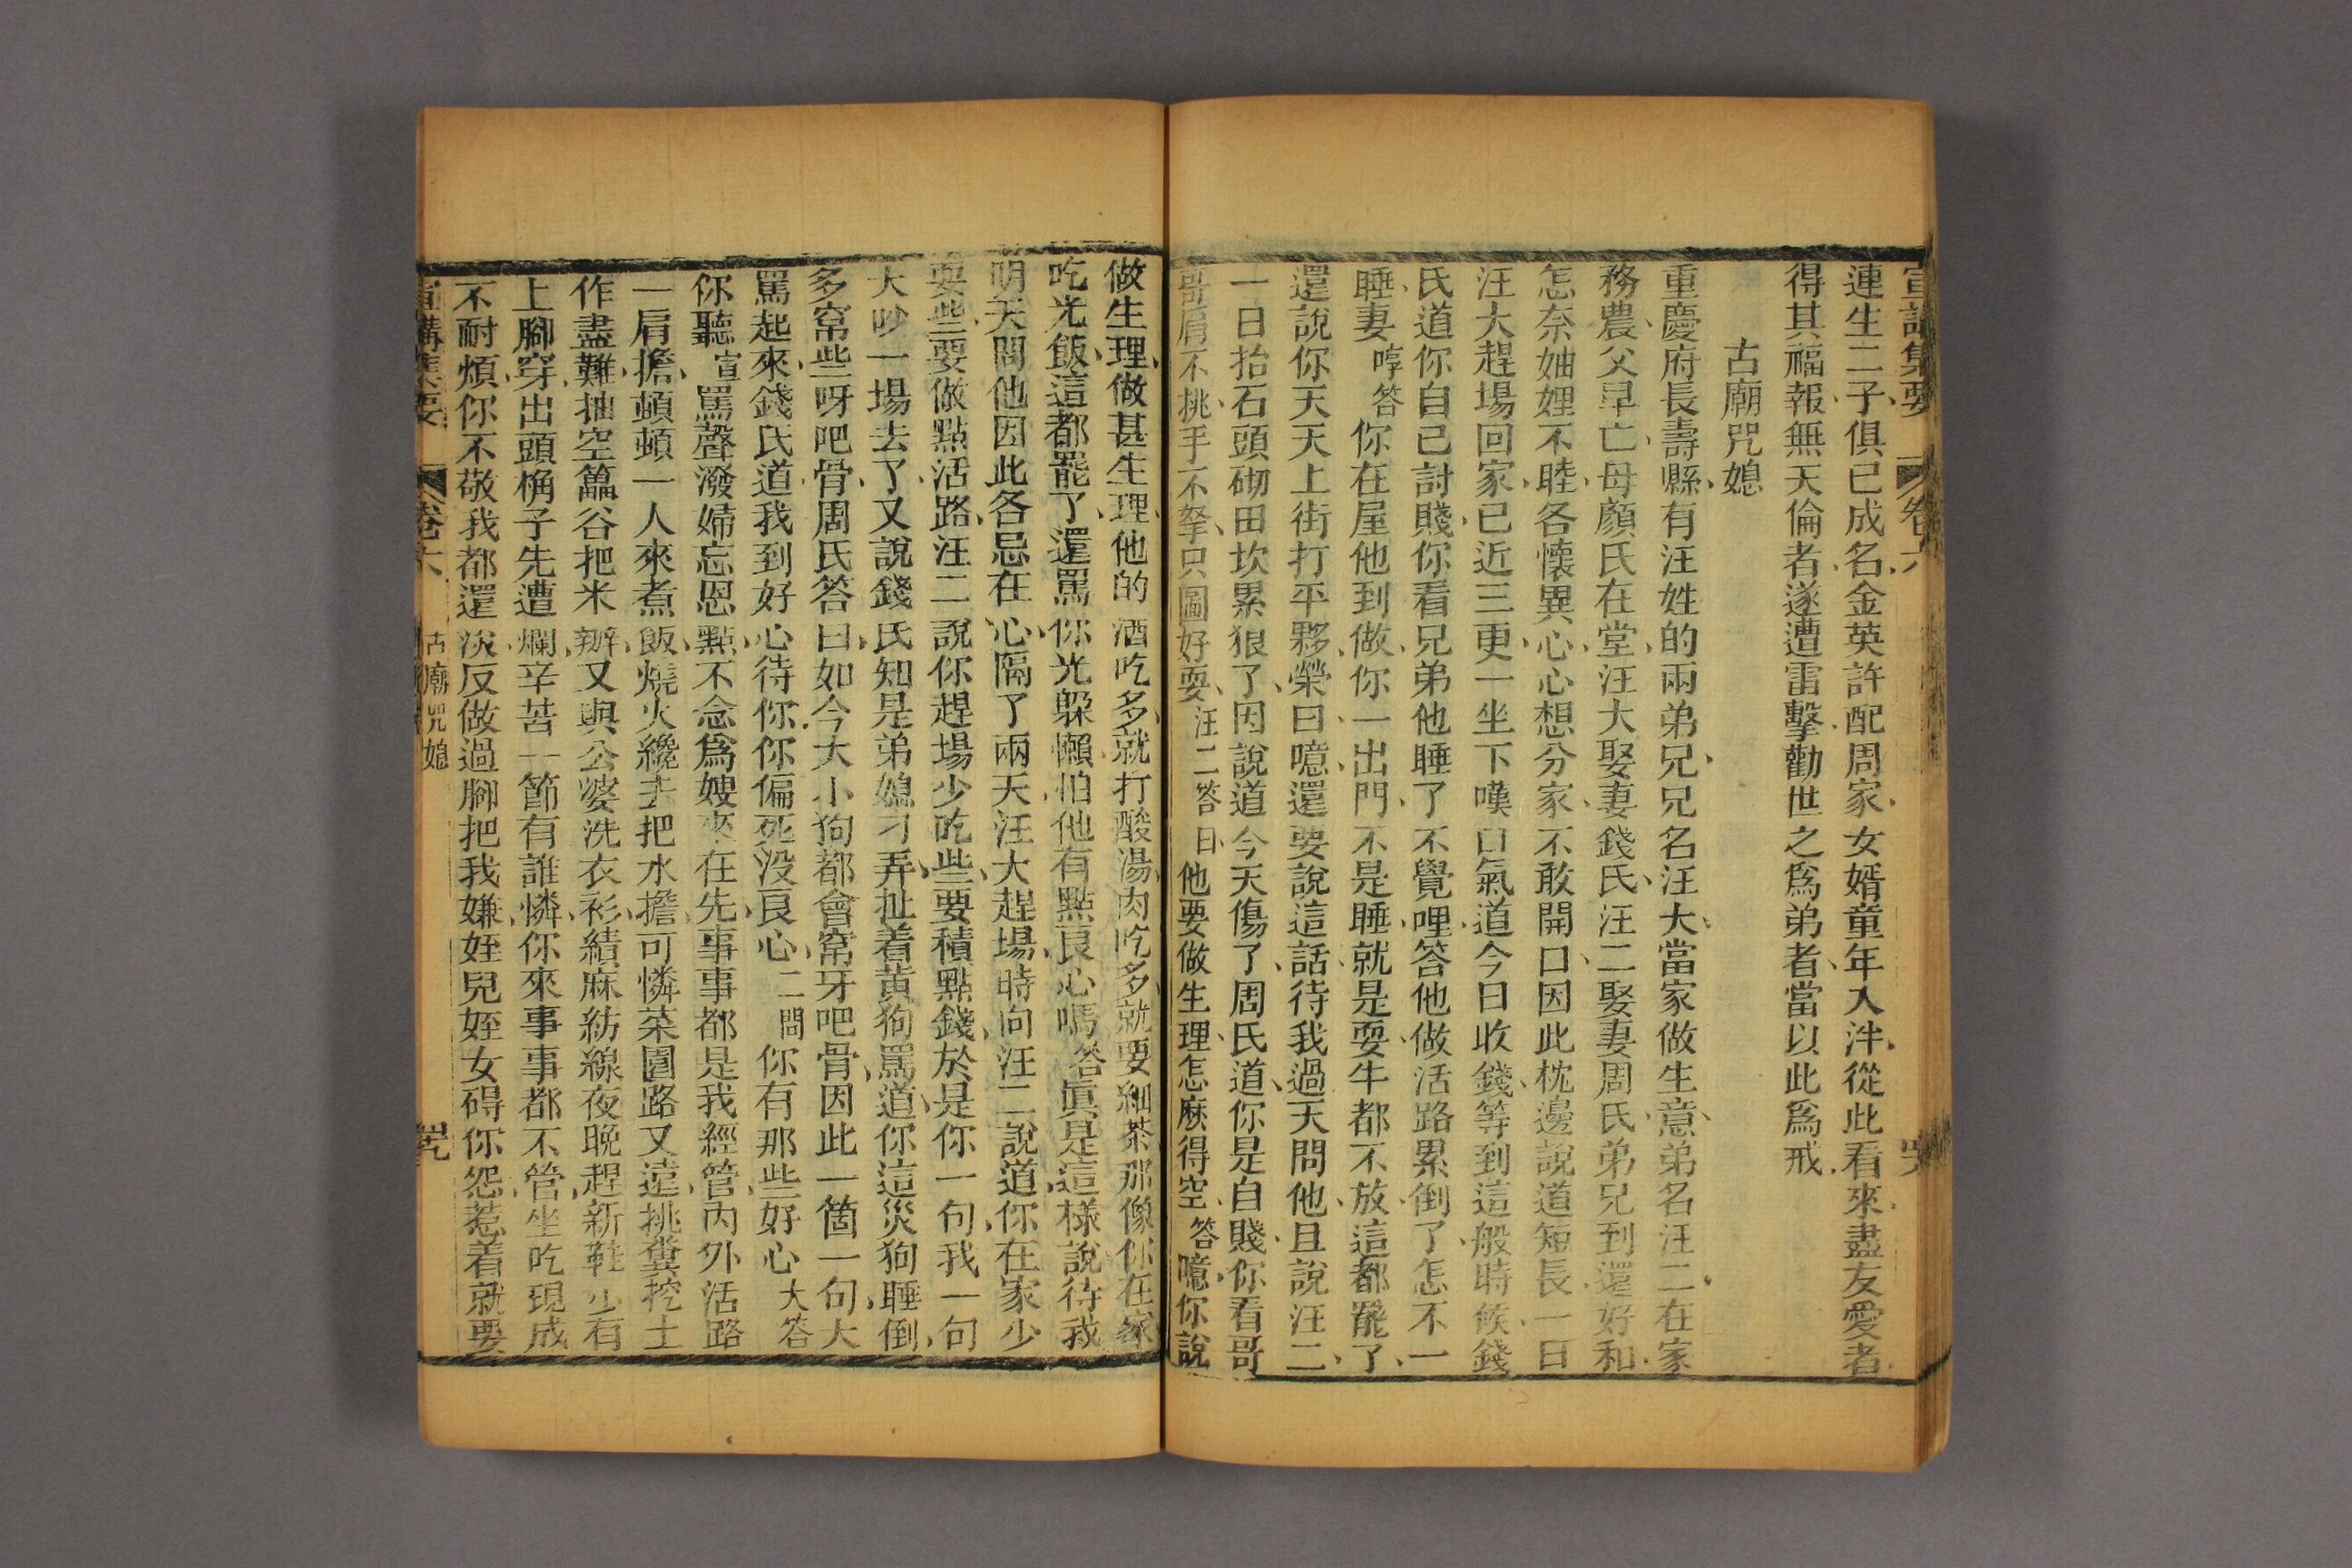 宣講集要 卷六
連生二子俱已成名金英許配周家女婿童年入泮從此看來盡友愛者
得其福報無天倫者遂遭雷擊勸世之爲弟者當以此爲戒
古廟咒媳
重慶府長壽縣有汪姓的兩弟兄兄名汪大當家做生意弟名汪二在家
務農父早亡母顏氏在堂汪大娶妻錢氏汪二娶妻周氏弟兄到還好和
怎奈妯娌不睦各懷異心心想分家不敢開口因此枕邊說道短長一日
汪大趕場回家已近三更一坐下嘆口氣道今日收錢等到這般時候錢
氏道你自已討賤你看兄弟他睡了不覺哩答他做活路累倒了怎不一
睡妻哼答你在屋他到做你一出門不是睡就是耍牛都不放這都罷了
還說你天天上街打平夥榮曰噫還要說這話待我過天問他且說汪二
一日抬石頭砌田坎累狠了因說道今天傷了周氏道你是自賤你看哥
哥肩不挑手不拏只圖好耍汪二答曰他要做生理怎麽得空答噫你說
做生理做甚生理他的酒吃多就打酸湯肉吃多就要細茶那像你在家
吃光飯這都罷了還罵你光躲懶怕他有點良心嗎答眞是這樣說待我
明天問他因此各忌在心隔了兩天汪大趕場時向汪二說道你在家少
耍些要做點活路汪二說你趕場少吃些要積點錢於是你一句我一句
大吵一場去了又說錢氏知是弟媳刁弄扯着黄狗罵道你這災狗睡倒
多窩些呀吧骨周氏答曰如今大小狗都會窩牙吧骨因此一箇一句大
罵起來錢氏道我到好心待你你偏死没良心二問你有那些好心大答
你聽宣罵聲潑婦忘恩點不念爲嫂來在先事事都是我經管内外活路
一肩擔頓頓一人來煮飯燒火纔去把水擔可憐菜園路又遠挑糞挖土
作盡難抽空簫谷把米辦又與公婆洗衣衫績麻紡線夜晚趕新鞋少有
上腳穿出頭桷子先遭爛辛苦一節有誰憐你來事事都不管坐吃現成
不耐煩你不敬我都還淡反做過腳把我嫌姪兒姪女碍你怨惹着就要
宣講集要 卷六 古廟咒媳